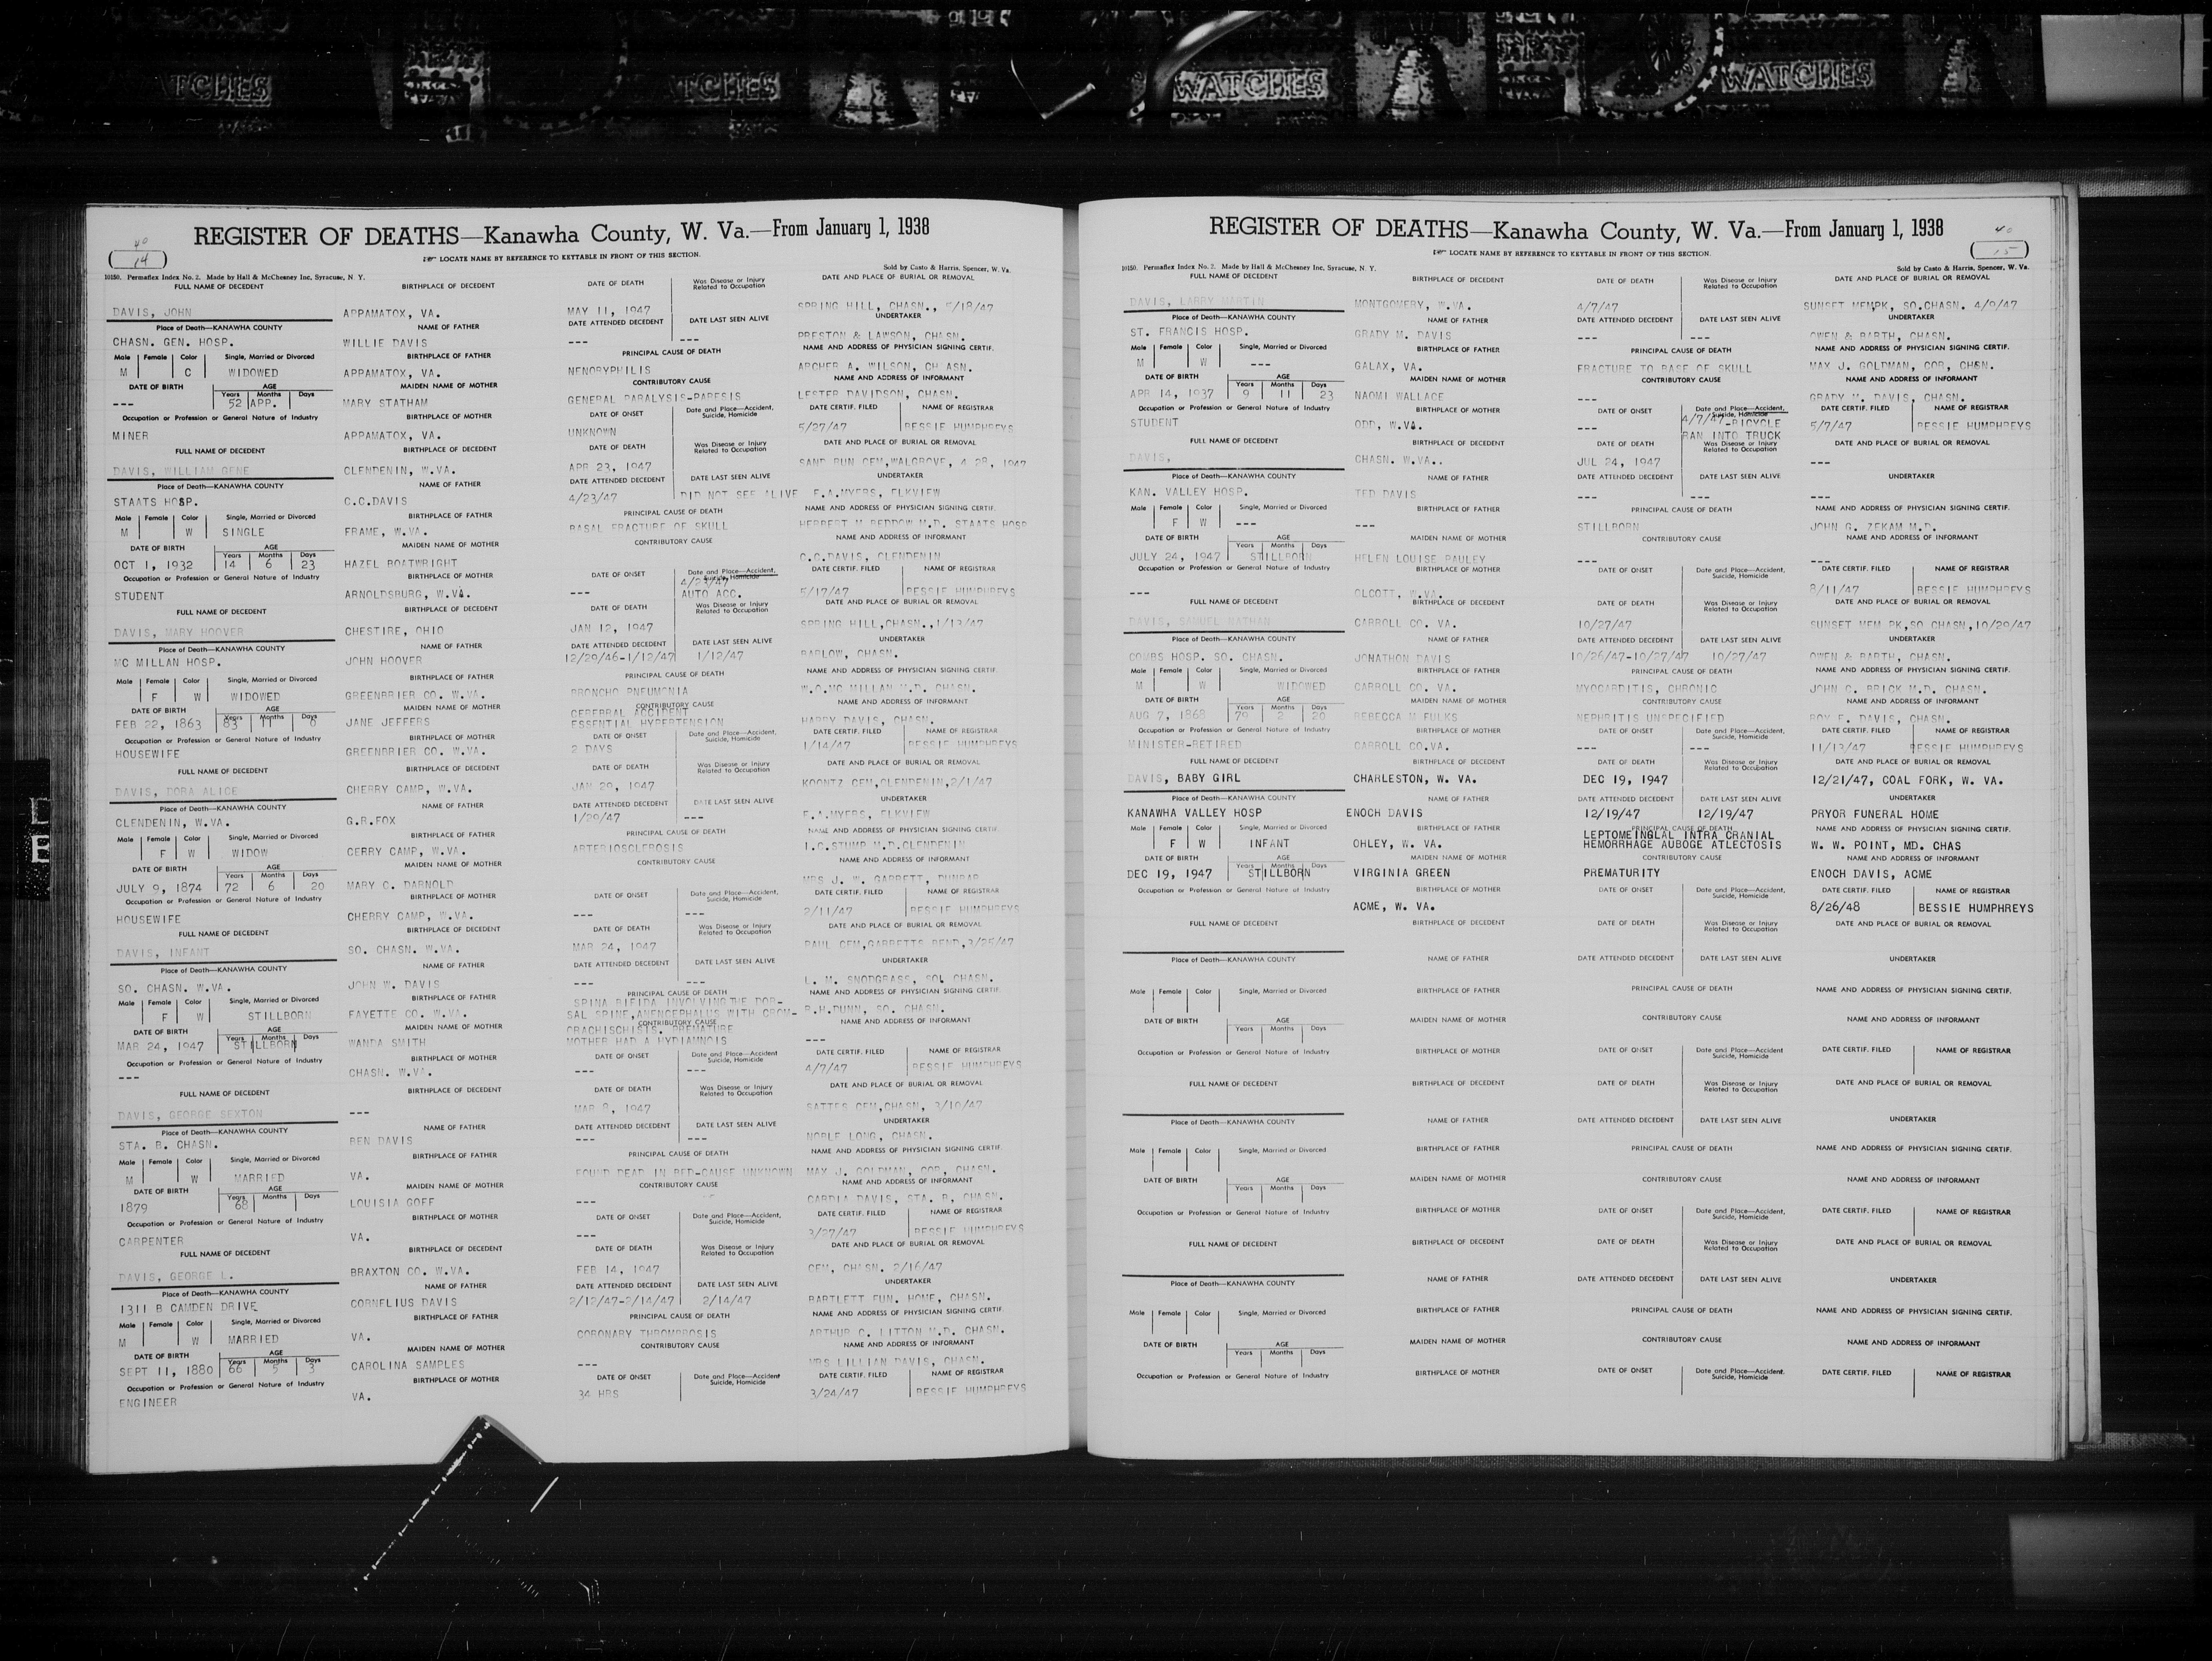 WATCHES
WATCHES
REGISTER OF DEATHS—Kanawha County, W. Va.—From January 1, 1938
40
14
LOCATE NAME BY REFERENCE TO KEYTABLE IN FRONT OF THIS SECTION.
10150. Permaflex Index No. 2. Made by Hall & McChesney Inc, Syracuse, N. Y.
Sold by Casto & Harris, Spencer, W. Va.
FULL NAME OF DECEDENT BIRTHPLACE OF DECEDENT DATE OF DEATH Was Disease or Injury Related to Occupation DATE AND PLACE OF BURIAL OR REMOVAL
DAVIS, JOHN APPAMATOX, VA. MAY 11, 1947 SPRING HILL, CHASN., 5/18/47
Place of Death—KANAWHA COUNTY NAME OF FATHER DATE ATTENDED DECEDENT DATE LAST SEEN ALIVE UNDERTAKER
CHASN. GEN. HOSP. WILLIE DAVIS --- --- PRESTON & LAWSON, CHASN.
Male Female Color Single, Married or Divorced BIRTHPLACE OF FATHER PRINCIPAL CAUSE OF DEATH NAME AND ADDRESS OF PHYSICIAN SIGNING CERTIF.
M C WIDOWED APPAMATOX, VA. NENORYPHILIS ARCHER A. WILSON, CH ASN.
DATE OF BIRTH AGE Years Months Days MAIDEN NAME OF MOTHER CONTRIBUTORY CAUSE NAME AND ADDRESS OF INFORMANT
--- 52 APP. MARY STATHAM GENERAL PARALYSIS-PARESIS LESTER DAVIDSON, CHASN.
Occupation or Profession or General Nature of Industry BIRTHPLACE OF MOTHER DATE OF ONSET Date and Place—Accident, Suicide, Homicide DATE CERTIF. FILED NAME OF REGISTRAR
MINER APPAMATOX, VA. UNKNOWN 5/27/47 BESSIE HUMPHREYS
FULL NAME OF DECEDENT BIRTHPLACE OF DECEDENT DATE OF DEATH Was Disease or Injury Related to Occupation DATE AND PLACE OF BURIAL OR REMOVAL
DAVIS, WILLIAM GENE CLENDENIN, W.VA. APR 23, 1947 SAND RUN CEM,WALGROVE, 4 28, 1947
Place of Death—KANAWHA COUNTY NAME OF FATHER DATE ATTENDED DECEDENT DATE LAST SEEN ALIVE UNDERTAKER
STAATS HOSP. C.C.DAVIS 4/23/47 DID NOT SEE ALIVE F.A.MYERS, ELKVIEW
Male Female Color Single, Married or Divorced BIRTHPLACE OF FATHER PRINCIPAL CAUSE OF DEATH NAME AND ADDRESS OF PHYSICIAN SIGNING CERTIF.
M W SINGLE FRAME, W.VA. BASAL FRACTURE OF SKULL HERBERT M BEDDOW M.D. STAATS HOSP
DATE OF BIRTH AGE Years Months Days MAIDEN NAME OF MOTHER CONTRIBUTORY CAUSE NAME AND ADDRESS OF INFORMANT
OCT 1, 1932 14 6 23 HAZEL BOATWRIGHT C.C.DAVIS, CLENDENIN
Occupation or Profession or General Nature of Industry BIRTHPLACE OF MOTHER DATE OF ONSET Date and Place—Accident, Suicide, Homicide DATE CERTIF. FILED NAME OF REGISTRAR
STUDENT ARNOLDSBURG, W.VA. --- 4/23/47 AUTO ACC. 5/17/47 BESSIE HUMPHREYS
FULL NAME OF DECEDENT BIRTHPLACE OF DECEDENT DATE OF DEATH Was Disease or Injury Related to Occupation DATE AND PLACE OF BURIAL OR REMOVAL
DAVIS, MARY HOOVER CHESTIRE, OHIO JAN 12, 1947 SPRING HILL,CHASN.,1/13/47
Place of Death—KANAWHA COUNTY NAME OF FATHER DATE ATTENDED DECEDENT DATE LAST SEEN ALIVE UNDERTAKER
MC MILLAN HOSP. JOHN HOOVER 12/29/46-1/12/47 1/12/47 BARLOW, CHASN.
Male Female Color Single, Married or Divorced BIRTHPLACE OF FATHER PRINCIPAL CAUSE OF DEATH NAME AND ADDRESS OF PHYSICIAN SIGNING CERTIF.
F W WIDOWED GREENBRIER CO. W.VA. BRONCHO PNEUMONIA W.O.MC MILLAN M.D. CHASN.
DATE OF BIRTH AGE Years Months Days MAIDEN NAME OF MOTHER CONTRIBUTORY CAUSE NAME AND ADDRESS OF INFORMANT
FEB 22, 1863 83 11 0 JANE JEFFERS CEREBRAL ACCIDENT ESSENTIAL HYPERTENSION HARRY DAVIS, CHASN.
Occupation or Profession or General Nature of Industry BIRTHPLACE OF MOTHER DATE OF ONSET Date and Place—Accident, Suicide, Homicide DATE CERTIF. FILED NAME OF REGISTRAR
HOUSEWIFE GREENBRIER CO. W.VA. 2 DAYS 1/14/47 BESSIE HUMPHREYS
FULL NAME OF DECEDENT BIRTHPLACE OF DECEDENT DATE OF DEATH Was Disease or Injury Related to Occupation DATE AND PLACE OF BURIAL OR REMOVAL
DAVIS, DORA ALICE CHERRY CAMP, W.VA. JAN 29, 1947 KOONTZ CEM,CLENDENIN,2/1/47
Place of Death—KANAWHA COUNTY NAME OF FATHER DATE ATTENDED DECEDENT DATE LAST SEEN ALIVE UNDERTAKER
CLENDENIN, W.VA. G.R.FOX 1/29/47 --- F.A.MYERS, ELKVIEW
Male Female Color Single, Married or Divorced BIRTHPLACE OF FATHER PRINCIPAL CAUSE OF DEATH NAME AND ADDRESS OF PHYSICIAN SIGNING CERTIF.
F W WIDOW CERRY CAMP, W.VA. ARTERIOSCLEROSIS I.C.STUMP M.D.CLENDENIN
DATE OF BIRTH AGE Years Months Days MAIDEN NAME OF MOTHER CONTRIBUTORY CAUSE NAME AND ADDRESS OF INFORMANT
JULY 9, 1874 72 6 20 MARY C. DARNOLD MRS J. W. GARRETT, DUNBAR
Occupation or Profession or General Nature of Industry BIRTHPLACE OF MOTHER DATE OF ONSET Date and Place—Accident, Suicide, Homicide DATE CERTIF. FILED NAME OF REGISTRAR
HOUSEWIFE CHERRY CAMP, W.VA. --- --- 2/11/47 BESSIE HUMPHREYS
FULL NAME OF DECEDENT BIRTHPLACE OF DECEDENT DATE OF DEATH Was Disease or Injury Related to Occupation DATE AND PLACE OF BURIAL OR REMOVAL
DAVIS, INFANT SO. CHASN. W.VA. MAR 24, 1947 PAUL CEM,GARRETTS BEND,3/25/47
Place of Death—KANAWHA COUNTY NAME OF FATHER DATE ATTENDED DECEDENT DATE LAST SEEN ALIVE UNDERTAKER
SO. CHASN. W.VA. JOHN W. DAVIS --- --- L. M. SNODGRASS, SOL CHASN.
Male Female Color Single, Married or Divorced BIRTHPLACE OF FATHER PRINCIPAL CAUSE OF DEATH NAME AND ADDRESS OF PHYSICIAN SIGNING CERTIF.
F W STILLBORN FAYETTE CO. W.VA. SPINA BIFIDA INVOLVING THE DOR-SAL SPINE,ANENCEPHALUS WITH CROM- R.H.DUNN, SO. CHASN.
DATE OF BIRTH AGE Years Months Days MAIDEN NAME OF MOTHER CONTRIBUTORY CAUSE NAME AND ADDRESS OF INFORMANT
MAR 24, 1947 STILLBORN WANDA SMITH CRACHISCHISIS. PREMATURE MOTHER HAD A HYDIAMNOIS ---
Occupation or Profession or General Nature of Industry BIRTHPLACE OF MOTHER DATE OF ONSET Date and Place—Accident Suicide, Homicide DATE CERTIF. FILED NAME OF REGISTRAR
--- CHASN. W.VA. --- --- 4/7/47 BESSIE HUMPHREYS
FULL NAME OF DECEDENT BIRTHPLACE OF DECEDENT DATE OF DEATH Was Disease or Injury Related to Occupation DATE AND PLACE OF BURIAL OR REMOVAL
DAVIS, GEORGE SEXTON --- MAR 8, 1947 SATTES CEM,CHASN, 3/10/47
Place of Death—KANAWHA COUNTY NAME OF FATHER DATE ATTENDED DECEDENT DATE LAST SEEN ALIVE UNDERTAKER
STA. B. CHASN. BEN DAVIS --- --- NOBLE LONG, CHASN.
Male Female Color Single, Married or Divorced BIRTHPLACE OF FATHER PRINCIPAL CAUSE OF DEATH NAME AND ADDRESS OF PHYSICIAN SIGNING CERTIF.
M W MARRIED VA. FOUND DEAD IN BED-CAUSE UNKNOWN MAX J. GOLDMAN, COR, CHASN.
DATE OF BIRTH AGE Years Months Days MAIDEN NAME OF MOTHER CONTRIBUTORY CAUSE NAME AND ADDRESS OF INFORMANT
1879 68 LOUISIA GOFF --- CARDIA DAVIS, STA. B, CHASN.
Occupation or Profession or General Nature of Industry BIRTHPLACE OF MOTHER DATE OF ONSET Date and Place—Accident, Suicide, Homicide DATE CERTIF. FILED NAME OF REGISTRAR
CARPENTER VA. --- 3/27/47 BESSIE HUMPHREYS
FULL NAME OF DECEDENT BIRTHPLACE OF DECEDENT DATE OF DEATH Was Disease or Injury Related to Occupation DATE AND PLACE OF BURIAL OR REMOVAL
DAVIS, GEORGE L. BRAXTON CO. W.VA. FEB 14, 1947 CEM, CHASN. 2/16/47
Place of Death—KANAWHA COUNTY NAME OF FATHER DATE ATTENDED DECEDENT DATE LAST SEEN ALIVE UNDERTAKER
1311 B CAMDEN DRIVE CORNELIUS DAVIS 2/12/47-2/14/47 2/14/47 BARTLETT FUN. HOME, CHASN.
Male Female Color Single, Married or Divorced BIRTHPLACE OF FATHER PRINCIPAL CAUSE OF DEATH NAME AND ADDRESS OF PHYSICIAN SIGNING CERTIF.
M W MARRIED VA. CORONARY THROMBOSIS ARTHUR C. LITTON M.D. CHASN.
DATE OF BIRTH AGE Years Months Days MAIDEN NAME OF MOTHER CONTRIBUTORY CAUSE NAME AND ADDRESS OF INFORMANT
SEPT 11, 1880 66 5 3 CAROLINA SAMPLES --- MRS LILLIAN DAVIS, CHASN.
Occupation or Profession or General Nature of Industry BIRTHPLACE OF MOTHER DATE OF ONSET Date and Place—Accident Suicide, Homicide DATE CERTIF. FILED NAME OF REGISTRAR
ENGINEER VA. 34 HRS 3/24/47 BESSIE HUMPHREYS
REGISTER OF DEATHS—Kanawha County, W. Va.—From January 1, 1938
40
15
LOCATE NAME BY REFERENCE TO KEYTABLE IN FRONT OF THIS SECTION.
10150. Permaflex Index No. 2. Made by Hall & McChesney Inc, Syracuse, N. Y.
Sold by Casto & Harris, Spencer, W. Va.
FULL NAME OF DECEDENT BIRTHPLACE OF DECEDENT DATE OF DEATH Was Disease or Injury Related to Occupation DATE AND PLACE OF BURIAL OR REMOVAL
DAVIS, LARRY MARTIN MONTGOMERY, W.VA. 4/7/47 SUNSET MEMPK, SO.CHASN. 4/9/47
Place of Death—KANAWHA COUNTY NAME OF FATHER DATE ATTENDED DECEDENT DATE LAST SEEN ALIVE UNDERTAKER
ST. FRANCIS HOSP. GRADY M. DAVIS --- --- OWEN & BARTH, CHASN.
Male Female Color Single, Married or Divorced BIRTHPLACE OF FATHER PRINCIPAL CAUSE OF DEATH NAME AND ADDRESS OF PHYSICIAN SIGNING CERTIF.
M W --- GALAX, VA. FRACTURE TO BASE OF SKULL MAX J. GOLDMAN, COR, CHSN.
DATE OF BIRTH AGE Years Months Days MAIDEN NAME OF MOTHER CONTRIBUTORY CAUSE NAME AND ADDRESS OF INFORMANT
APR 14, 1937 9 11 23 NAOMI WALLACE --- GRADY M. DAVIS, CHASN.
Occupation or Profession or General Nature of Industry BIRTHPLACE OF MOTHER DATE OF ONSET Date and Place—Accident, Suicide, Homicide DATE CERTIF. FILED NAME OF REGISTRAR
STUDENT ODD, W.VA. --- 4/7/47-BICYCLE RAN INTO TRUCK 5/7/47 BESSIE HUMPHREYS
FULL NAME OF DECEDENT BIRTHPLACE OF DECEDENT DATE OF DEATH Was Disease or Injury Related to Occupation DATE AND PLACE OF BURIAL OR REMOVAL
DAVIS, CHASN. W.VA.. JUL 24, 1947 ---
Place of Death—KANAWHA COUNTY NAME OF FATHER DATE ATTENDED DECEDENT DATE LAST SEEN ALIVE UNDERTAKER
KAN. VALLEY HOSP. TED DAVIS --- --- ---
Male Female Color Single, Married or Divorced BIRTHPLACE OF FATHER PRINCIPAL CAUSE OF DEATH NAME AND ADDRESS OF PHYSICIAN SIGNING CERTIF.
F W --- --- STILLBORN JOHN G. ZEKAM M.D.
DATE OF BIRTH AGE Years Months Days MAIDEN NAME OF MOTHER CONTRIBUTORY CAUSE NAME AND ADDRESS OF INFORMANT
JULY 24, 1947 STILLBORN HELEN LOUISE PAULEY --- ---
Occupation or Profession or General Nature of Industry BIRTHPLACE OF MOTHER DATE OF ONSET Date and Place—Accident, Suicide, Homicide DATE CERTIF. FILED NAME OF REGISTRAR
--- OLCOTT, W.VA. --- --- 8/11/47 BESSIE HUMPHREYS
FULL NAME OF DECEDENT BIRTHPLACE OF DECEDENT DATE OF DEATH Was Disease or Injury Related to Occupation DATE AND PLACE OF BURIAL OR REMOVAL
DAVIS, SAMUEL NATHAN CARROLL CO. VA. 10/27/47 SUNSET MEM PK,SO CHASN,10/29/47
Place of Death—KANAWHA COUNTY NAME OF FATHER DATE ATTENDED DECEDENT DATE LAST SEEN ALIVE UNDERTAKER
COMBS HOSP. SO. CHASN. JONATHON DAVIS 10/26/47-10/27/47 10/27/47 OWEN & BARTH, CHASN.
Male Female Color Single, Married or Divorced BIRTHPLACE OF FATHER PRINCIPAL CAUSE OF DEATH NAME AND ADDRESS OF PHYSICIAN SIGNING CERTIF.
M W WIDOWED CARROLL CO. VA. MYOCARDITIS, CHRONIC JOHN C. BRICK M.D. CHASN.
DATE OF BIRTH AGE Years Months Days MAIDEN NAME OF MOTHER CONTRIBUTORY CAUSE NAME AND ADDRESS OF INFORMANT
AUG 7, 1868 79 2 20 REBECCA M FULKS NEPHRITIS UNSPECIFIED ROY F. DAVIS, CHASN.
Occupation or Profession or General Nature of Industry BIRTHPLACE OF MOTHER DATE OF ONSET Date and Place—Accident, Suicide, Homicide DATE CERTIF. FILED NAME OF REGISTRAR
MINISTER-RETIRED CARROLL CO.VA. --- --- 11/13/47 BESSIE HUMPHREYS
FULL NAME OF DECEDENT BIRTHPLACE OF DECEDENT DATE OF DEATH Was Disease or Injury Related to Occupation DATE AND PLACE OF BURIAL OR REMOVAL
DAVIS, BABY GIRL CHARLESTON, W. VA. DEC 19, 1947 12/21/47, COAL FORK, W. VA.
Place of Death—KANAWHA COUNTY NAME OF FATHER DATE ATTENDED DECEDENT DATE LAST SEEN ALIVE UNDERTAKER
KANAWHA VALLEY HOSP ENOCH DAVIS 12/19/47 12/19/47 PRYOR FUNERAL HOME
Male Female Color Single, Married or Divorced BIRTHPLACE OF FATHER PRINCIPAL CAUSE OF DEATH NAME AND ADDRESS OF PHYSICIAN SIGNING CERTIF.
F W INFANT OHLEY, W. VA. LEPTOMEINGLAL INTRA CRANIAL HEMORRHAGE AUBOGE ATLECTOSIS W. W. POINT, MD. CHAS
DATE OF BIRTH AGE Years Months Days MAIDEN NAME OF MOTHER CONTRIBUTORY CAUSE NAME AND ADDRESS OF INFORMANT
DEC 19, 1947 STILLBORN VIRGINIA GREEN PREMATURITY ENOCH DAVIS, ACME
Occupation or Profession or General Nature of Industry BIRTHPLACE OF MOTHER DATE OF ONSET Date and Place—Accident, Suicide, Homicide DATE CERTIF. FILED NAME OF REGISTRAR
ACME, W. VA. 8/26/48 BESSIE HUMPHREYS
FULL NAME OF DECEDENT BIRTHPLACE OF DECEDENT DATE OF DEATH Was Disease or Injury Related to Occupation DATE AND PLACE OF BURIAL OR REMOVAL
Place of Death—KANAWHA COUNTY NAME OF FATHER DATE ATTENDED DECEDENT DATE LAST SEEN ALIVE UNDERTAKER
Male Female Color Single, Married or Divorced BIRTHPLACE OF FATHER PRINCIPAL CAUSE OF DEATH NAME AND ADDRESS OF PHYSICIAN SIGNING CERTIF.
DATE OF BIRTH AGE Years Months Days MAIDEN NAME OF MOTHER CONTRIBUTORY CAUSE NAME AND ADDRESS OF INFORMANT
Occupation or Profession or General Nature of Industry BIRTHPLACE OF MOTHER DATE OF ONSET Date and Place—Accident Suicide, Homicide DATE CERTIF. FILED NAME OF REGISTRAR
FULL NAME OF DECEDENT BIRTHPLACE OF DECEDENT DATE OF DEATH Was Disease or Injury Related to Occupation DATE AND PLACE OF BURIAL OR REMOVAL
Place of Death—KANAWHA COUNTY NAME OF FATHER DATE ATTENDED DECEDENT DATE LAST SEEN ALIVE UNDERTAKER
Male Female Color Single, Married or Divorced BIRTHPLACE OF FATHER PRINCIPAL CAUSE OF DEATH NAME AND ADDRESS OF PHYSICIAN SIGNING CERTIF.
DATE OF BIRTH AGE Years Months Days MAIDEN NAME OF MOTHER CONTRIBUTORY CAUSE NAME AND ADDRESS OF INFORMANT
Occupation or Profession or General Nature of Industry BIRTHPLACE OF MOTHER DATE OF ONSET Date and Place—Accident, Suicide, Homicide DATE CERTIF. FILED NAME OF REGISTRAR
FULL NAME OF DECEDENT BIRTHPLACE OF DECEDENT DATE OF DEATH Was Disease or Injury Related to Occupation DATE AND PLACE OF BURIAL OR REMOVAL
Place of Death—KANAWHA COUNTY NAME OF FATHER DATE ATTENDED DECEDENT DATE LAST SEEN ALIVE UNDERTAKER
Male Female Color Single, Married or Divorced BIRTHPLACE OF FATHER PRINCIPAL CAUSE OF DEATH NAME AND ADDRESS OF PHYSICIAN SIGNING CERTIF.
DATE OF BIRTH AGE Years Months Days MAIDEN NAME OF MOTHER CONTRIBUTORY CAUSE NAME AND ADDRESS OF INFORMANT
Occupation or Profession or General Nature of Industry BIRTHPLACE OF MOTHER DATE OF ONSET Date and Place—Accident. Suicide, Homicide DATE CERTIF. FILED NAME OF REGISTRAR